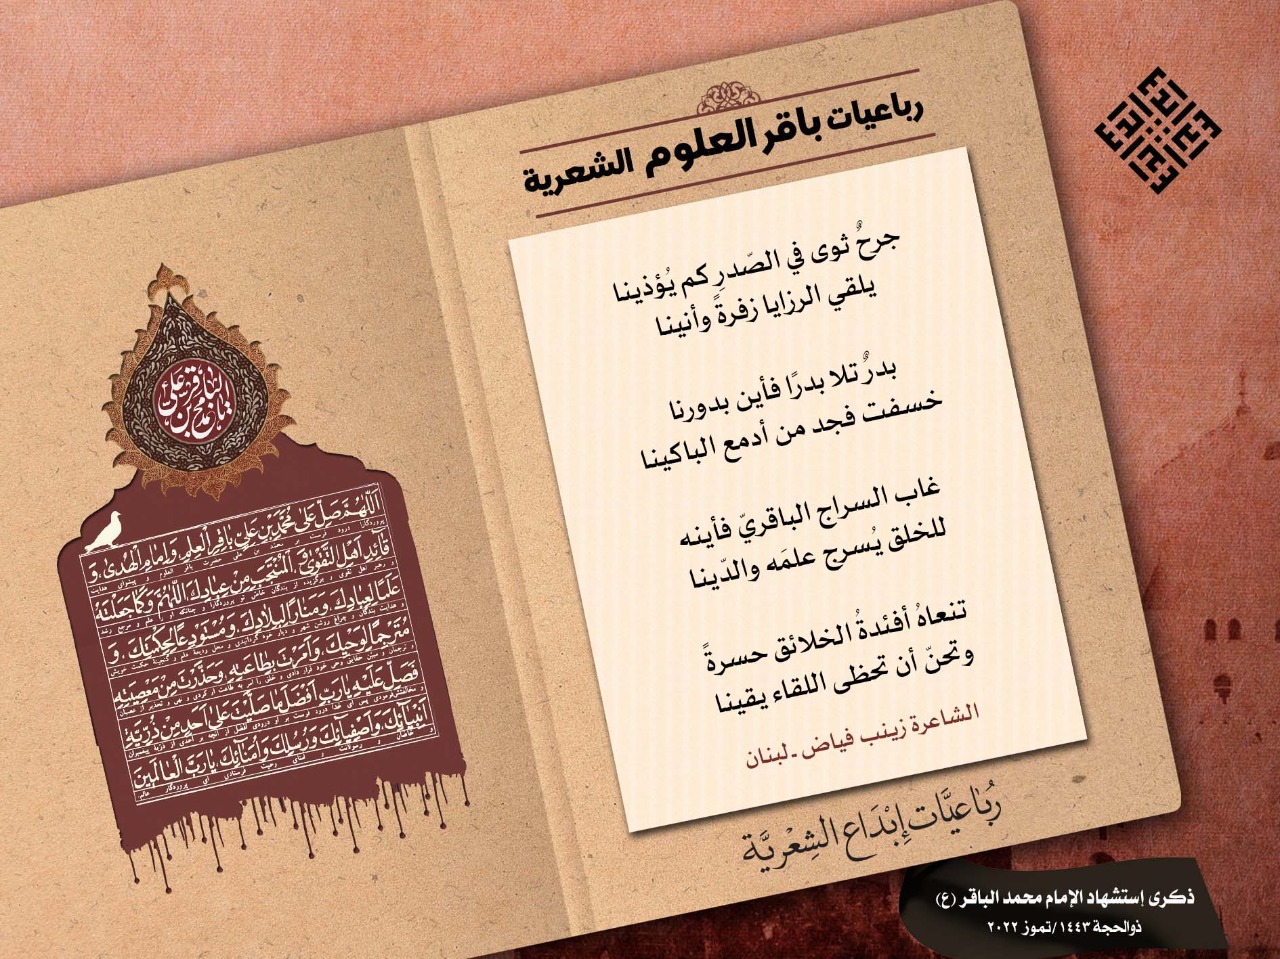 رباعيات باقر العلوم الشعرية
جرحٌ ثوى في الصّدرِ كم يُؤذينا
يلقي الرزايا زفرةً وأنينا
بدرٌ تلا بدرًا فأين بدورنا
خسفت فجد من أدمع الباكينا
غاب السراج الباقريّ فأينه
للخلق يُسرج علمَه والدّينا
تنعاهُ أفئدةُ الخلائق حسرةً
وتحنّ أن تحظى اللقاء يقينا
الشاعرة زينب فياض - لبنان
رُبَاعيَّات إِبْدَاع الشِعْريَّة
اَللّهُمَّ صَلِّ عَلى مُحَمَّدِ بْنِ عَلِيٍّ باقِرِ الْعِلْمِ، وَاِمامِ الْهُدى، وَ
قائِدِ اَهْلِ التَّقْوى، الْمُنْتَجَبِ مِنْ عِبادِكَ اَللّهُمَّ وَكَما جَعَلْتَهُ
عَلَماً لِعِبادِكَ، وَمَناراً لِبِلادِكَ، وَمُسْتَوْدِعاً لِحِكْمَتِكَ، وَ
مُتَرْجِماً لِوَحْيِكَ، وَاَمَرْتَ بِطاعَتِهِ، وَحَذَّرْتَ مِنْ مَعْصِيَتِهِ
فَصَلِّ عَلَيْهِ يا رَبِّ اَفْضَلَ ما صَلَّيْتَ عَلى اَحَدٍ مِنْ ذُرِّيَّةِ
اَنْبِيائِكَ، وَاَصْفِيائِكَ وَرُسُلِكَ وَاُمَنائِكَ يا رَبَّ الْعالَمينَ
ذكرى إستشهاد الإمام محمد الباقر (ع)
ذوالحجة ١٤٤٣ /تموز ٢٠٢٢